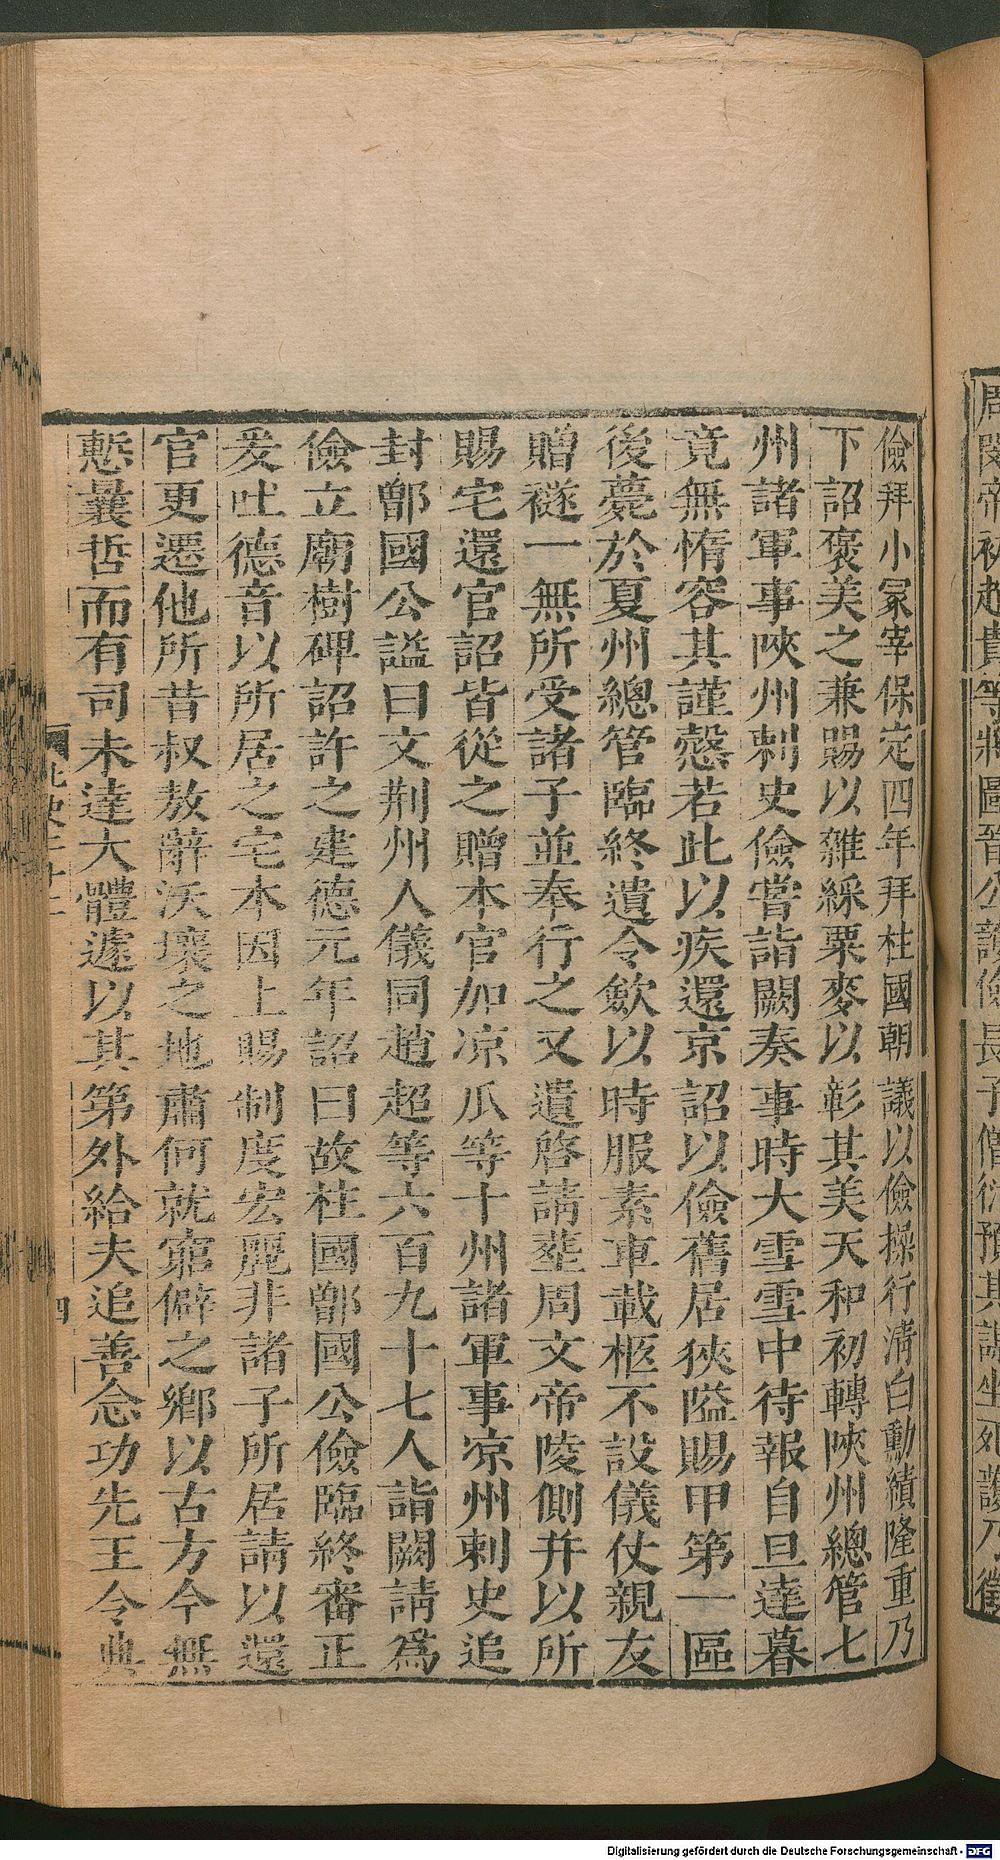 周閔帝初趙貴等將圖晉公護儉長子僧衍預其謀坐死護乃徵
儉拜小冢宰保定四年拜柱國朝議以儉操行清白勳績隆重乃
下詔褒美之兼賜以雜綵粟麥以彰其美天和初轉陝州總管七
州諸軍事陝州刺史儉嘗詣闕奏事時大雪雪中待報自旦達暮
竟無惰容其謹慤若此以疾還京詔以儉舊居狹隘賜甲第一區
後薨於夏州總管臨終遺令歛以時服素車載柩不設儀仗親友
贈襚一無所受諸子並奉行之又遺啓請塟周文帝陵側并以所
賜宅還官詔皆從之贈本官加涼瓜等十州諸軍事涼州刺史追
封鄫國公諡曰文荆州人儀同趙超等六百九十七人詣闕請爲
儉立廟樹碑詔許之建德元年詔曰故柱國鄫國公儉臨終審正
爰吐德音以所居之宅本因上賜制度宏麗非諸子所居請以還
官更遷他所昔叔敖辭沃壤之地肅何就窮僻之鄉以古方今無
慙曩哲而有司未達大體遽以其第外給夫追善念功先王令典
北史
四
Digitalisierung gefördert durch die Deutsche Forschungsgemeinschaft - DFG